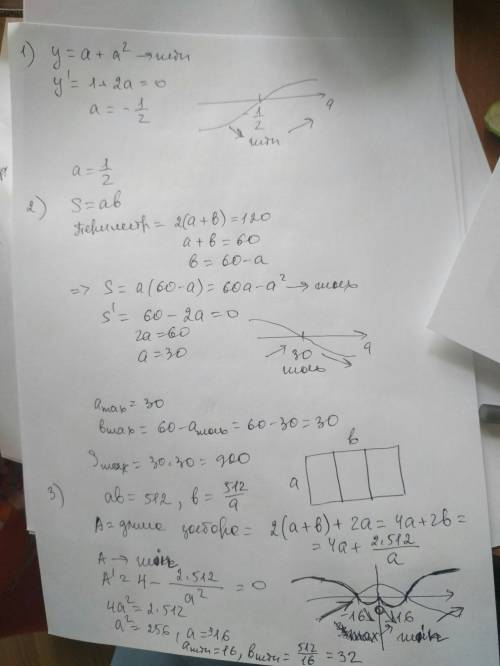 1) y = a + a² → min
y' = 1 + 2a = 0
a = -1/2
-1/2
a
min
a = 1/2
2) S = ab
Периметр = 2(a+b) = 120
a + b = 60
b = 60 - a
=> S = a(60-a) = 60a - a² → max
S' = 60 - 2a = 0
2a = 60
a = 30
30
a
max = 30
bmax = 60 - amax = 60 - 30 = 30
Smax = 30·30 = 900
3) ab = 512, b = 512/a
b
a
A = длина забора = 2(a+b) + 2a = 4a + 2b =
= 4a + 2·512/a
A → min
A' = 4 - 2·512/a² = 0
4a² = 2·512
a² = 256, a = 16
-16 0 16
max min
amin = 16, bmin = 512/16 = 32